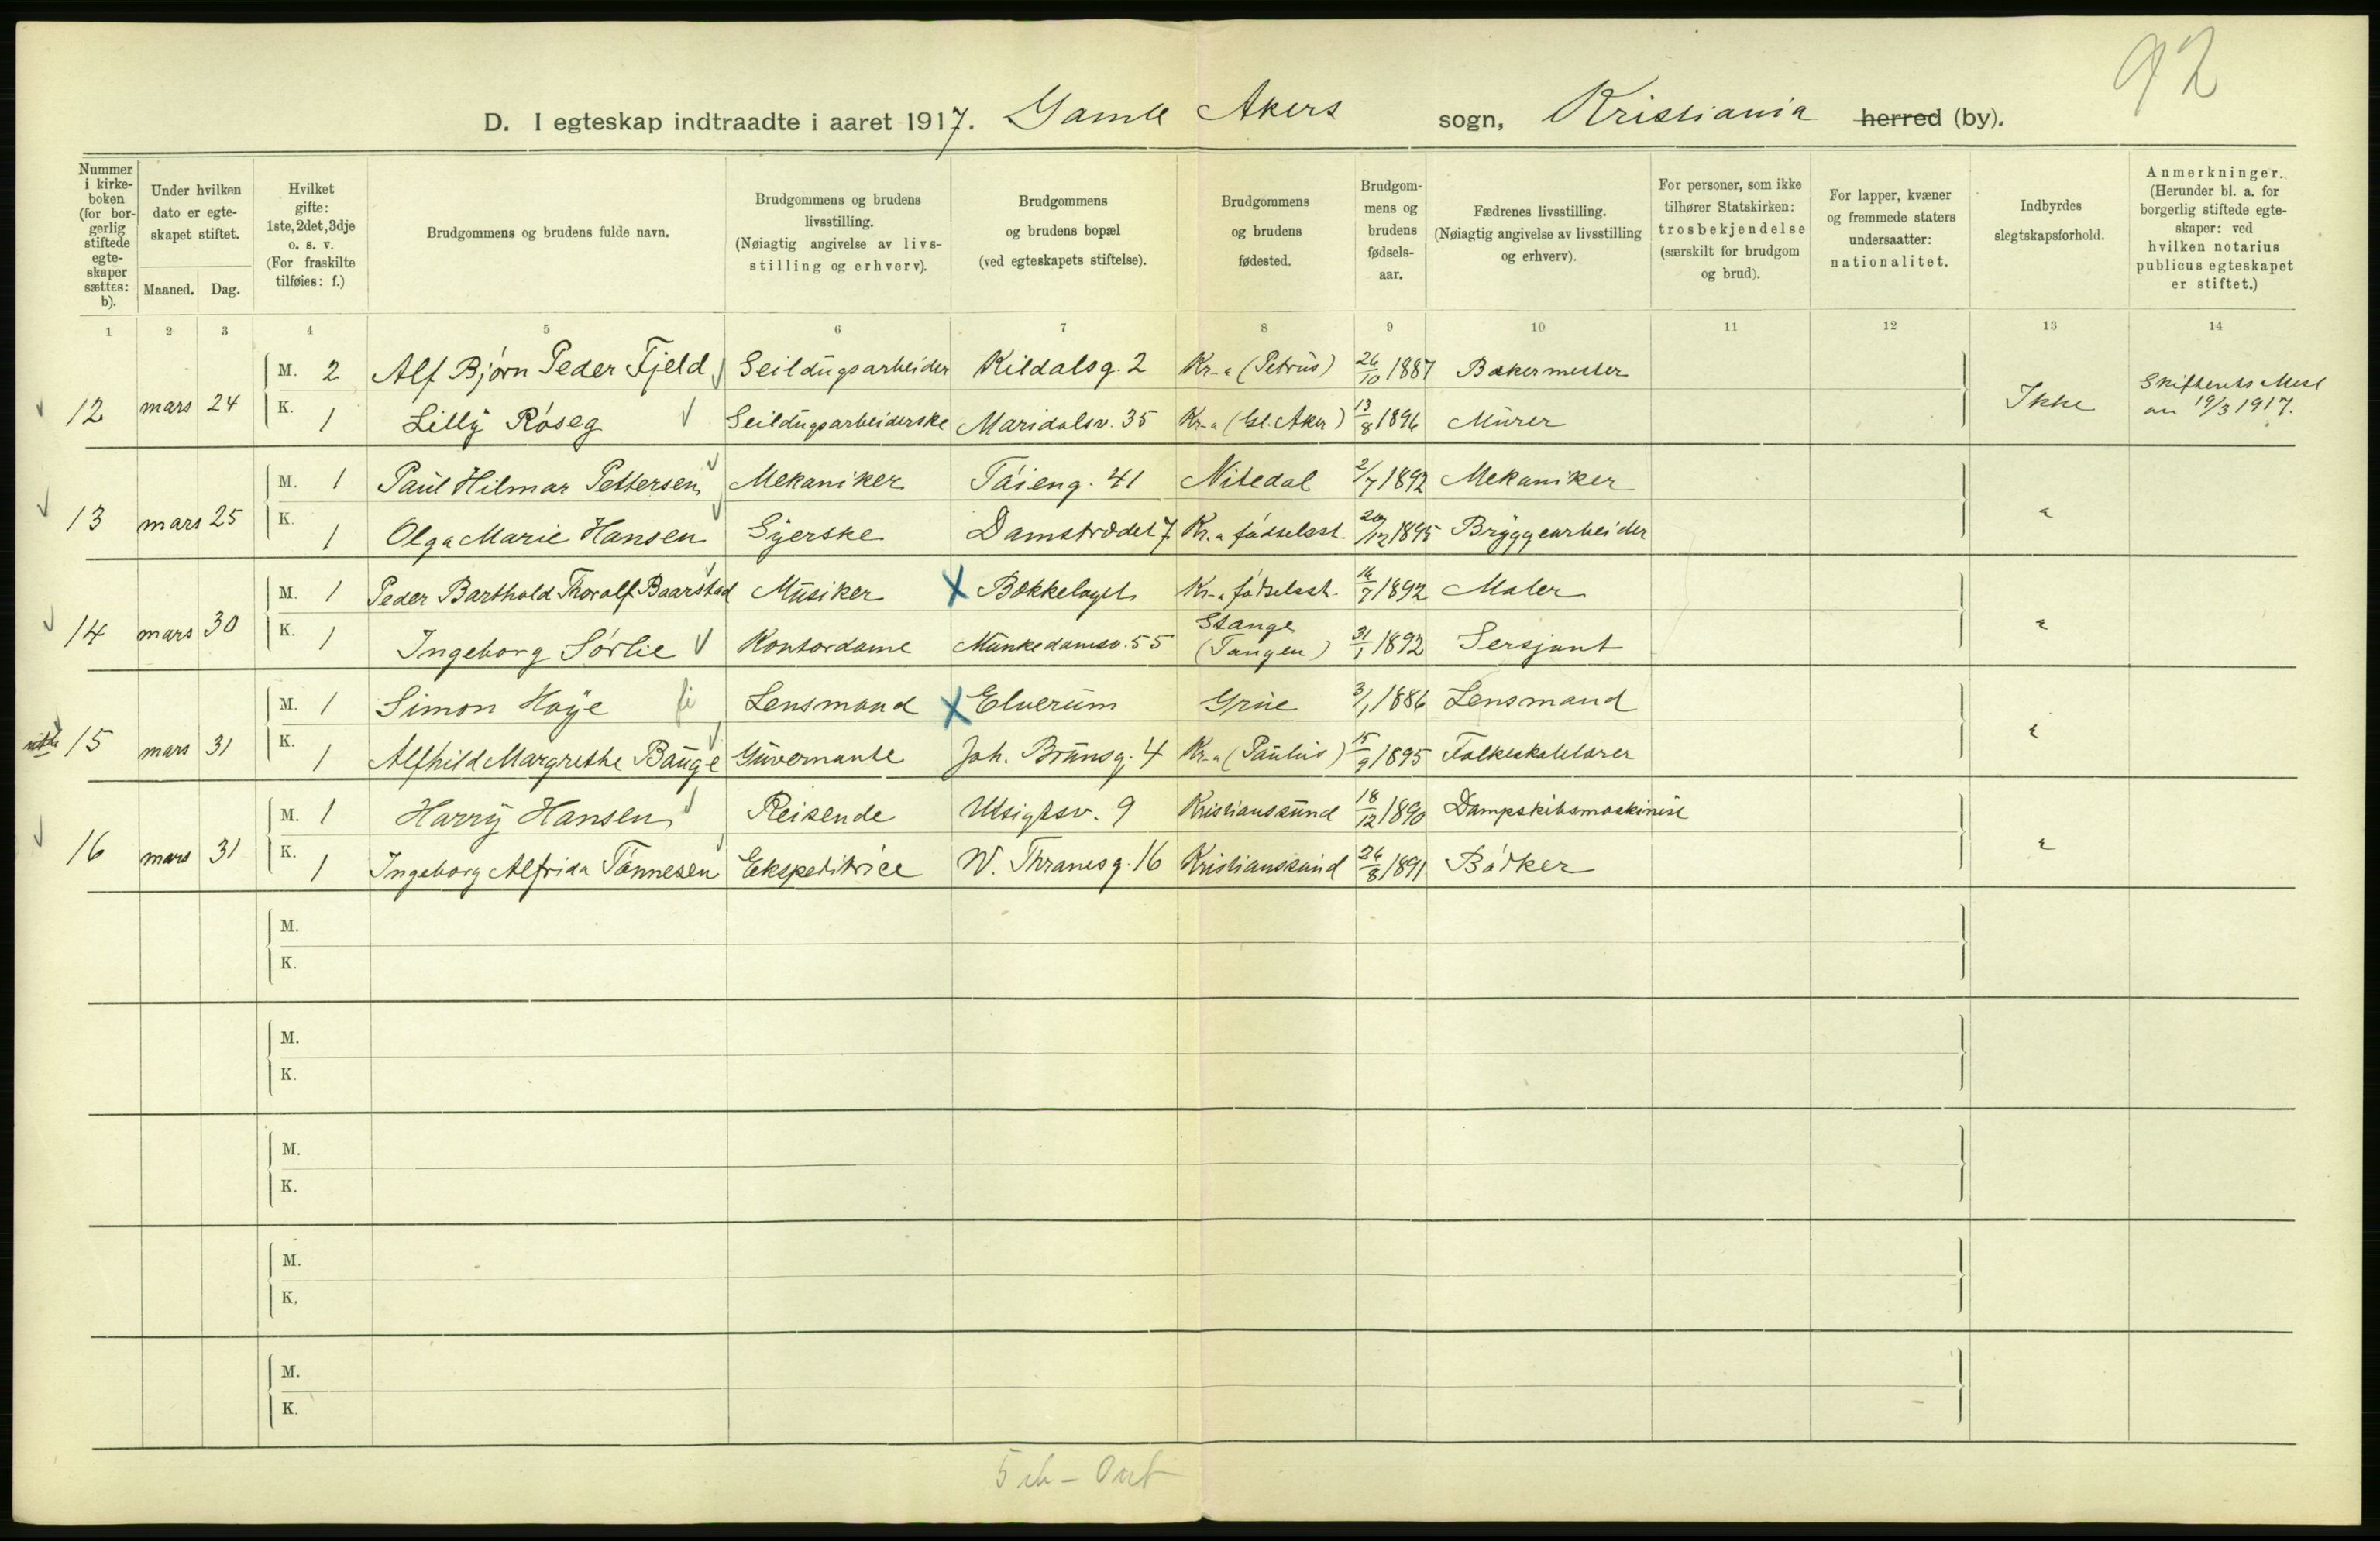 92
D. I egteskap indtraadte i aaret 1917. Gamle Akers sogn, Kristiania herred (by).
Nummer i kirke-boken (for bor-gerlig stiftede egte-skaper sættes: b).
Under hvilken dato er egte-skapet stiftet.
Maaned. Dag.
Hvilket gifte: 1ste, 2det, 3dje o. s. v. (For fraskilte tilføies: f.)
Brudgommens og brudens fulde navn.
Brudgommens og brudens livsstilling. (Nøiagtig angivelse av livs-stilling og erhverv).
Brudgommens og brudens bopæl (ved egteskapets stiftelse).
Brudgommens og brudens fødested.
Brudgom-mens og brudens fødsels-aar.
Fædrenes livsstilling. (Nøiagtig angivelse av livsstilling og erhverv).
For personer, som ikke tilhører Statskirken: trosbekjendelse (særskilt for brudgom og brud).
For lapper, kvæner og fremmede staters undersaatter: nationalitet.
Indbyrdes slegtskapsforhold.
Anmerkninger. (Herunder bl. a. for borgerlig stiftede egte-skaper: ved hvilken notarius publicus egteskapet er stiftet.)
1 2 3 4 5 6 7 8 9 10 11 12 13 14
M. 2 Alf Bjørn Peder Fjeld Seildugsarbeider Kildalsg. 2 Kr-a (Petrus) 26/10 1887 Bakermester
12 mars 24 K. 1 Lilly Røseg Seildugsarbeiderske Maridalsv. 35 Kr-a (Gl. Aker) 13/8 1896 Murer Ikke Skifterets 19/3 1917.
M. 1 Paul Hilmar Pettersen Mekaniker Tøieng. 41 Nitedal 2/7 1892 Mekaniker
13 mars 25 K. 1 Olga Marie Hansen Syerske Damstrædet 7 Kr.a fødselsst. 20/12 1895 Bryggearbeider "
M. 1 Peder Barthold Thoralf Baarstad Musiker Bækkelaget Kr-a fødselsst. 16/7 1892 Maler
14 mars 30 K. 1 Ingeborg Sørlie Kontordame Munkedamsv. 55 Stange (Tangen) 31/1 1892 Sersjant "
M. 1 Simon Høye Lensmand Elverum Grue 3/1 1886 Lensmand
15 mars 31 K. 1 Alfhild Margrethe Bauge Guvernante Joh. Brunsg. 4 Kr-a (Paulus) 15/9 1895 Folkeskolelærer "
M. 1 Harry Hansen Reisende Utsigtsv. 9 Kristianssund 18/12 1890 Dampskibsmaskinist
16 mars 31 K. 1 Ingeborg Alfrida Tønnesen Ekspeditrice W. Thranesg. 16 Kristianssund 26/8 1891 Bødker "
M.
K.
M.
K.
M.
K.
M.
K.
M.
K.